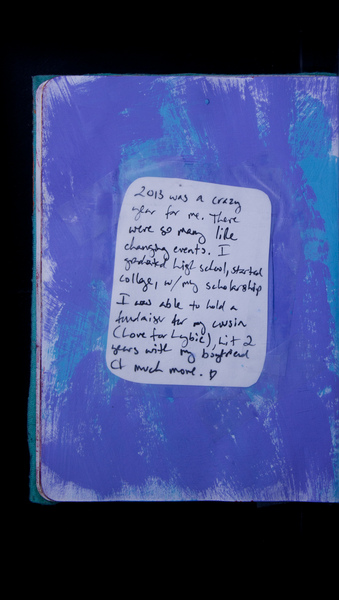 2013 was a crazy
year for me. There
were so many life
changing events. I
graduated high school, started
college, w/ my scholarship
I was able to hold a
fundraiser for my cousin
(Love for Lybie), hit 2
years with my boyfriend
& much more. ♡